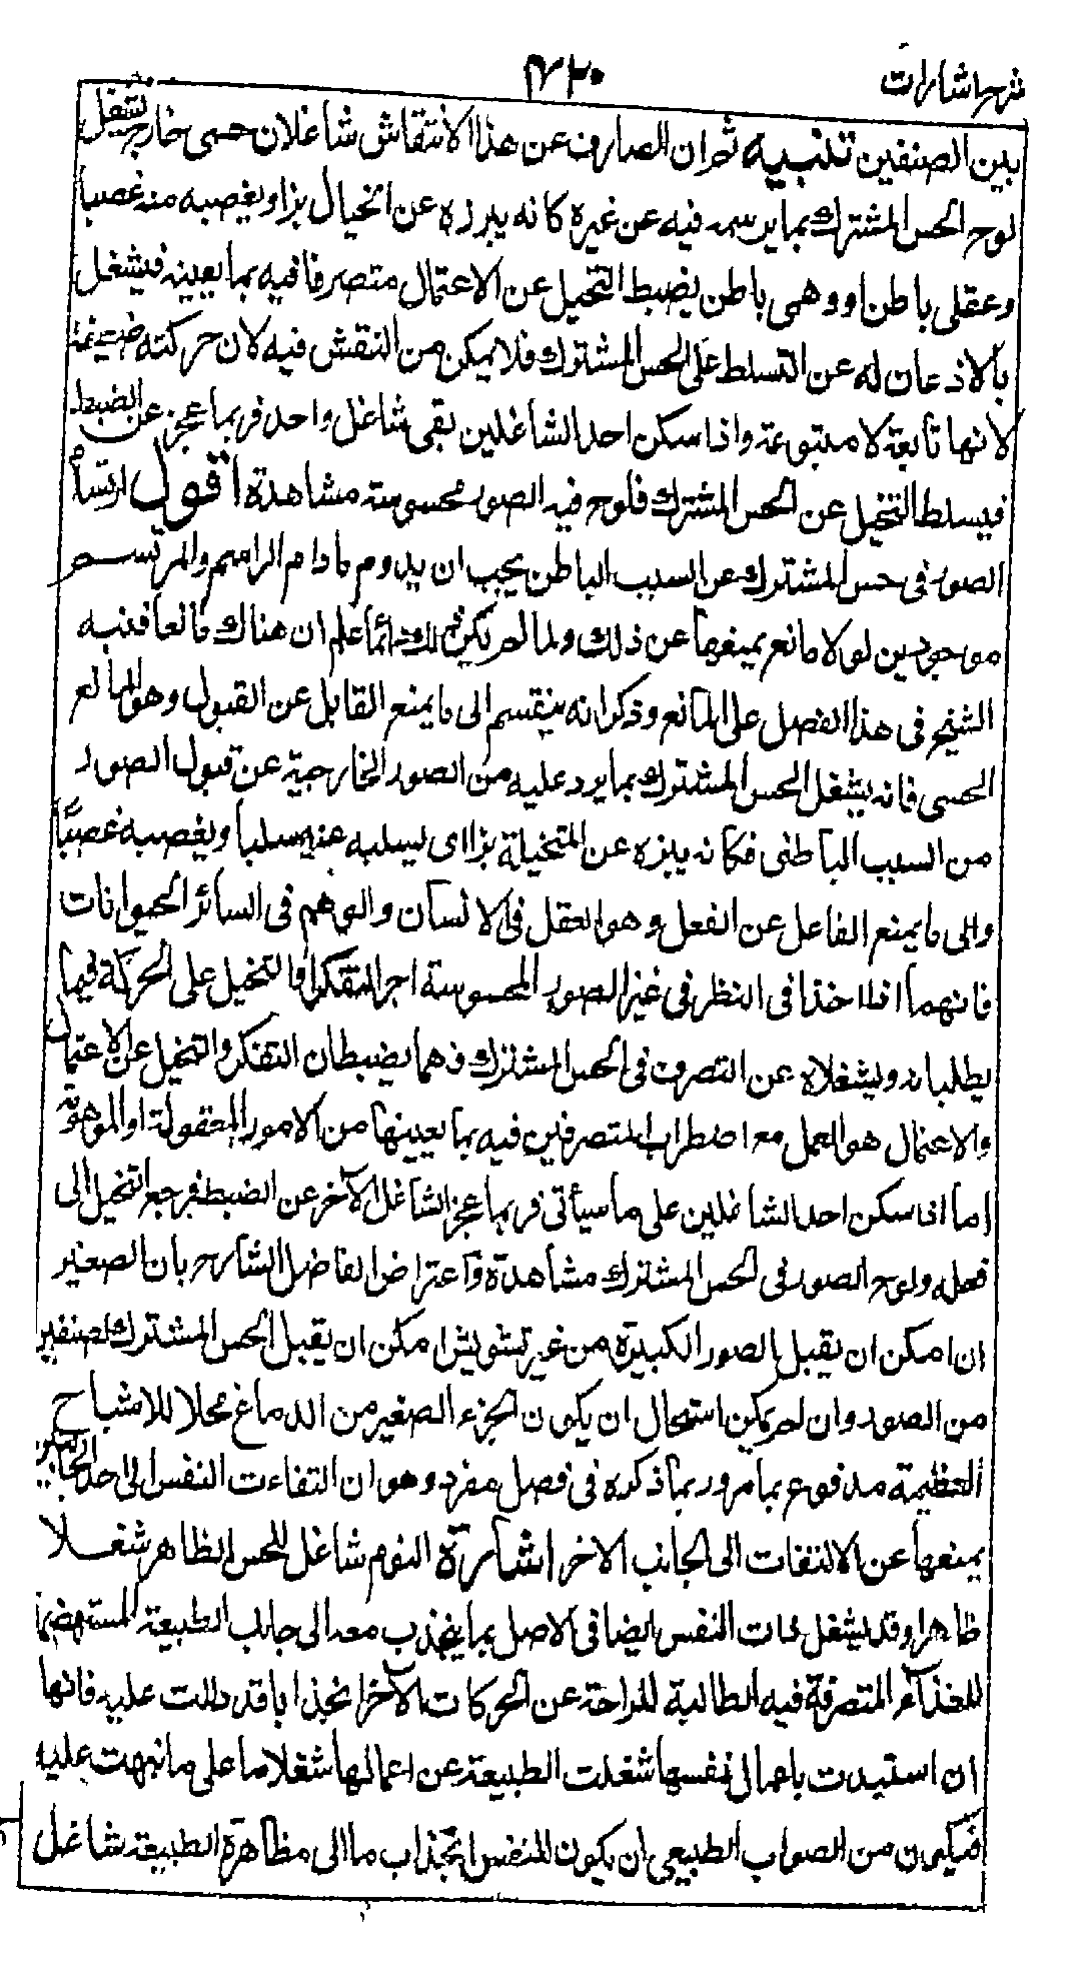 شرح اشارات
٤٢٠
بين الصنفين تنبيه ثم ان الصارف عن هذا الانتقاش شاغلان حسى خارج يشغل
لوح الحس المشترك بما يرسمه فيه عن غيره كانه يبزه عن الخيال بزا ويغصبه منه غصبا
وعقلى باطن او وهمى باطن يضبط التخيل عن الاعتمال متصرفا فيه بما يعينه فيشغل
بالاذعان له عن التسلط على الحس المشترك فلا يمكن من النقش فيه لان حركته ضعيفة
لانها تابعة لا متبوعة واذا سكن احد الشاغلين بقى شاغل واحد فربما عجز عن الضبط
فيسلط التخيل عن الحس المشترك فلوح فيه الصور محسوسة مشاهدة اقول ارتسام
الصور فى حس المشترك عن السبب الباطن يجب ان يدوم مادام الراسم والمرتسم
موجودين لولا مانع يمنعها عن ذلك ولما لم يكن ذلك دائما علم ان هناك مانعا فنبه
الشيخ فى هذا الفصل على المانع وذكر انه ينقسم الى ما يمنع القابل عن القبول وهو المانع
الحسى فانه يشغل الحس المشترك بما يرد عليه من الصور الخارجية عن قبول الصور
من السبب الباطنى فكانه يبزه عن المتخيلة بزا اى يسلبه عنه سلبا ويغصبه غصبا
والى ما يمنع الفاعل عن الفعل وهو العقل فى الانسان والوهم فى السائر الحيوانات
فانهما اذا اخذا فى النظر فى غير الصور المحسوسة اجبر التفكر او التخيل على الحركة فيما
يطلبانه ويشغلاه عن التصرف فى الحس المشترك فهما يضبطان التفكر والتخيل عن الاعتمال
والاعتمال هو العمل مع اضطراب المتصرفين فيه بما يعينها من الامور المعقولة او الموهومة
اما اذا سكن احد الشاغلين على ما سيأتى فربما عجز الشاغل الآخر عن الضبط فرجع التخيل الى
فعله ولوح الصور فى الحس المشترك مشاهدة واعتراض الفاضل الشارح بان الصغير
ان امكن ان يقبل الصور الكبيرة من غير تشويش امكن ان يقبل الحس المشترك الصنفين
من الصور وان لم يمكن استحال ان يكون الجزء الصغير من الدماغ محلا للاشباح
العظيمة مدفوع بما مر وربما ذكره فى فصل مفرد وهو ان التفاءت النفس الى احد الجانبين
يمنعها عن الالتفات الى الجانب الاخر اشارة النوم شاغل للحس الظاهر شغلا
ظاهرا وقد يشغل ذات النفس ايضا فى الاصل بما ينجذب معه الى جانب الطبيعة المستهضمة
للغذاء المتصرفة فيه الطالبة للراحة عن الحركات الآخر انجذابا قد دللت عليه فانها
ان استبدت باعمال نفسها شغلت الطبيعة عن اعمالها شغلا ما على ما نبهت عليه
فيكون من الصواب الطبيعى ان يكون للنفس انجذاب ما الى مظاهرة الطبيعة شاغل